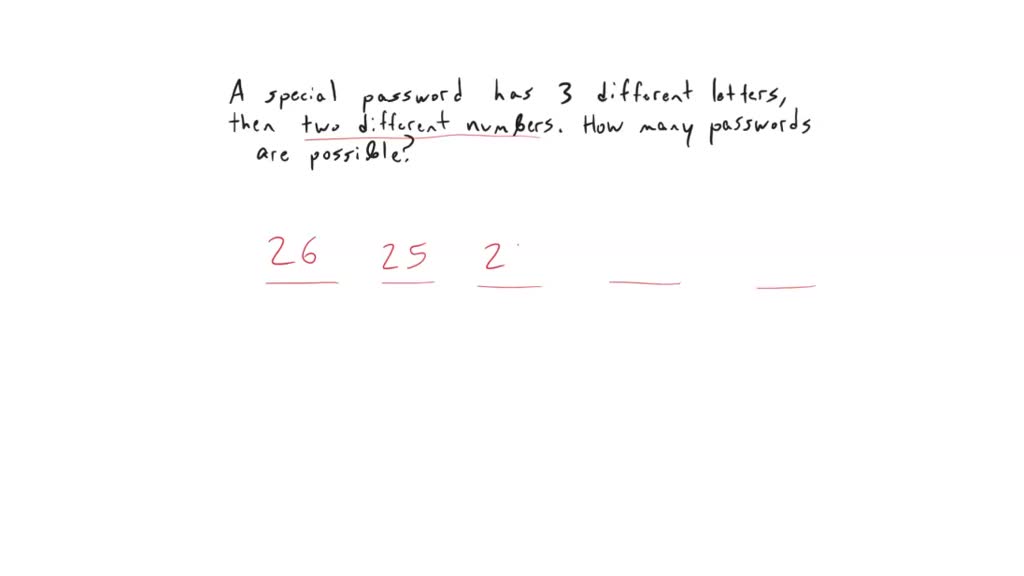 A special password has 3 different letters,
then two different numbers. How many passwords
are possible?
26 25 2